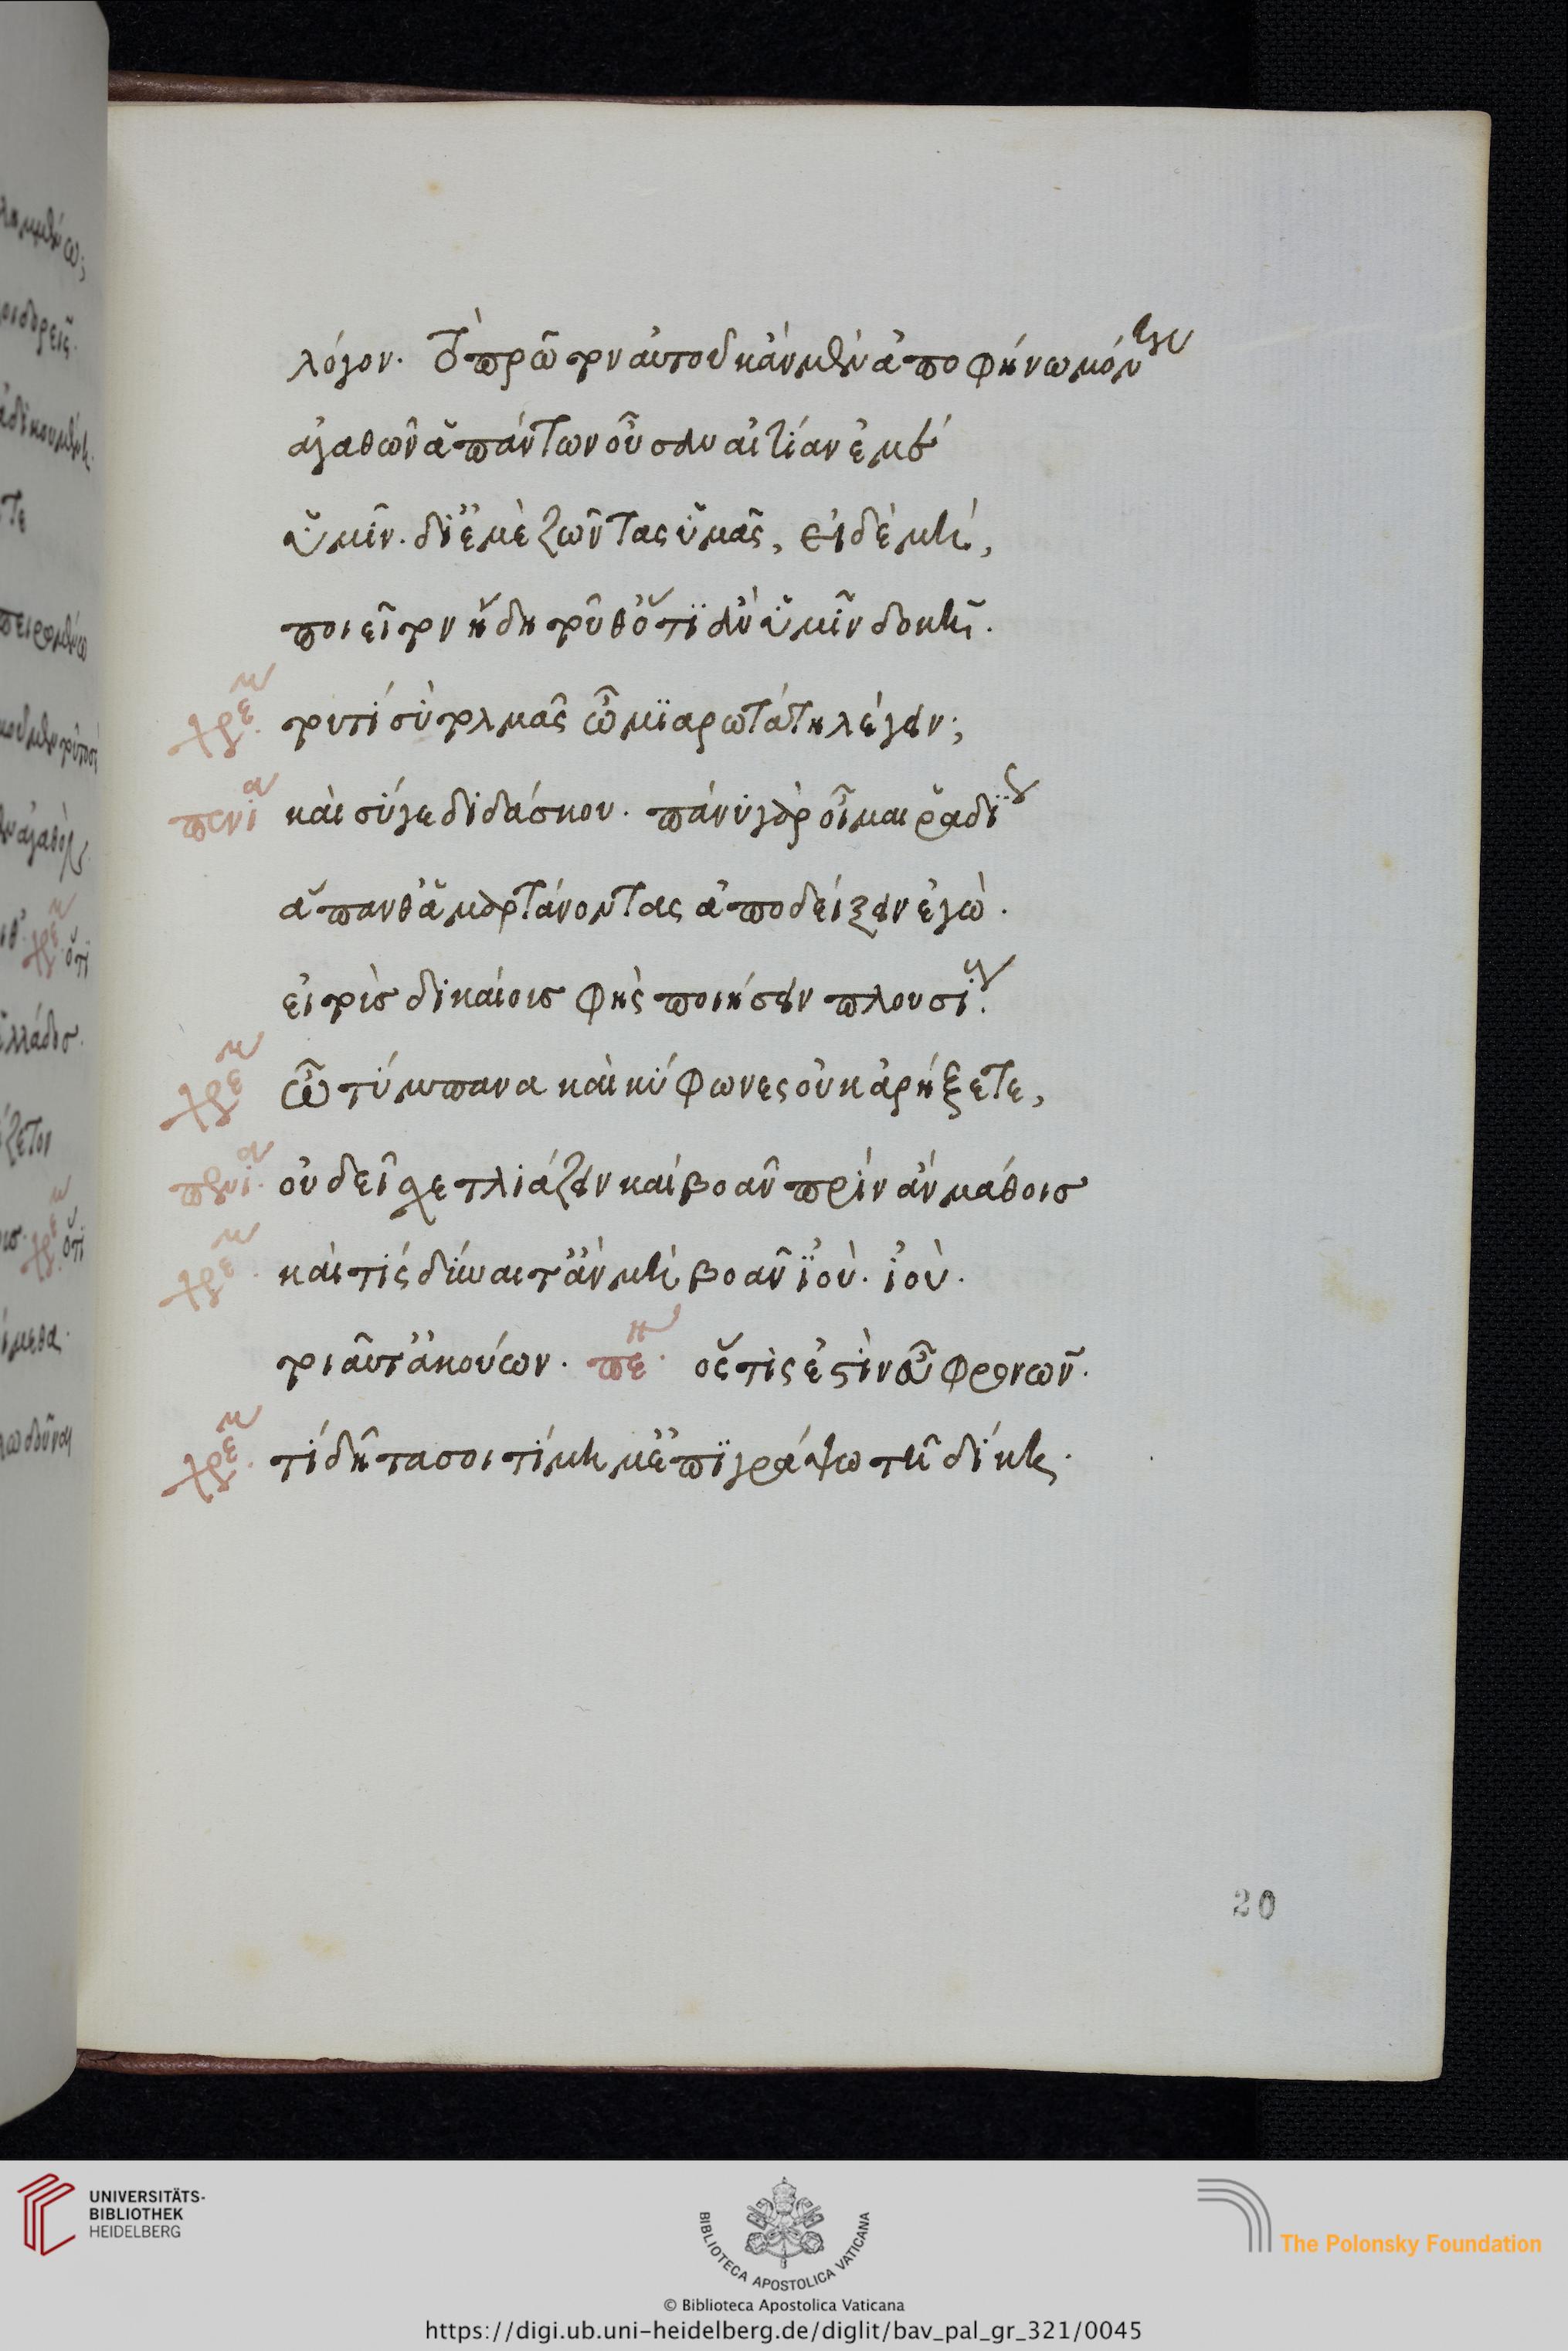 λόγον. τὸ πρῶτον αὐτοῦ κἂν μὲν ἀποφήνω μόνην
ἀγαθῶν ἁπάντων οὖσαν αἰτίαν ἐμὲ
ὑμῖν. δι' ἐμὲ ζῶντας ὑμᾶς, εἰ δὲ μή,
ποιεῖτον ἤδη τοῦθ' ὅτι ἂν ὑμῖν δοκῇ.
χρεμ. τουτὶ σὺ τολμᾷς ὦ μιαρωτάτη λέγειν;
πενία καὶ σύ γε διδάσκου. πάνυ γὰρ οἶμαι ῥαδίως
ἅπανθ' ἁμαρτάνοντας ἀποδείξειν ἐγὼ.
εἰ τοὺς δικαίους φῂς ποιήσειν πλουσίους.
χρεμ ὦ τύμπανα καὶ κύφωνες οὐκ ἀρήξετε,
πενία. οὐ δεῖ σχετλιάζειν καί βοᾶν πρίν ἄν μάθοις
χρεμ. καὶ τίς δύναιτ' ἂν μὴ βοᾶν ἰοὺ. ἰοὺ.
τοιαῦτ' ἀκούων. πεν. ὅς τὶς ἐστὶν εὖ φρονῶν.
χρεμ. τί δῆτα σοι τίμημ' ἐπιγράψω τῇ δίκῃ.
20
UNIVERSITÄTS-
BIBLIOTHEK
HEIDELBERG
BIBLIOTECA APOSTOLICA VATICANA
The Polonsky Foundation
© Biblioteca Apostolica Vaticana
https://digi.ub.uni-heidelberg.de/diglit/bav_pal_gr_321/0045